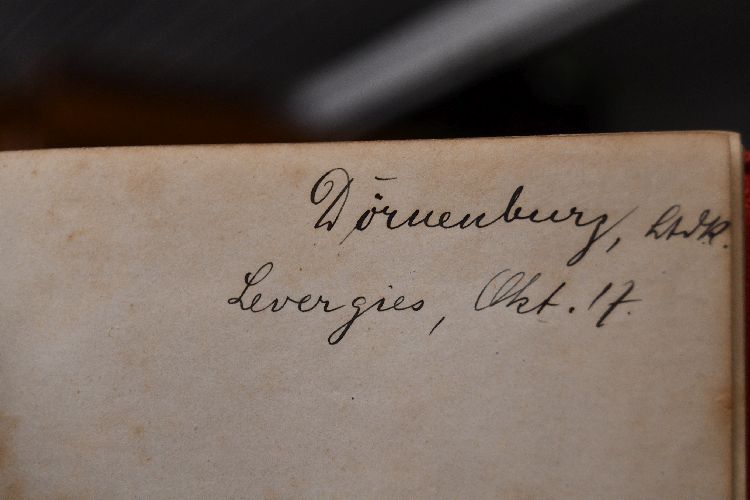 Dörnenburg, Ltdk.
Levergies, Okt. 17.